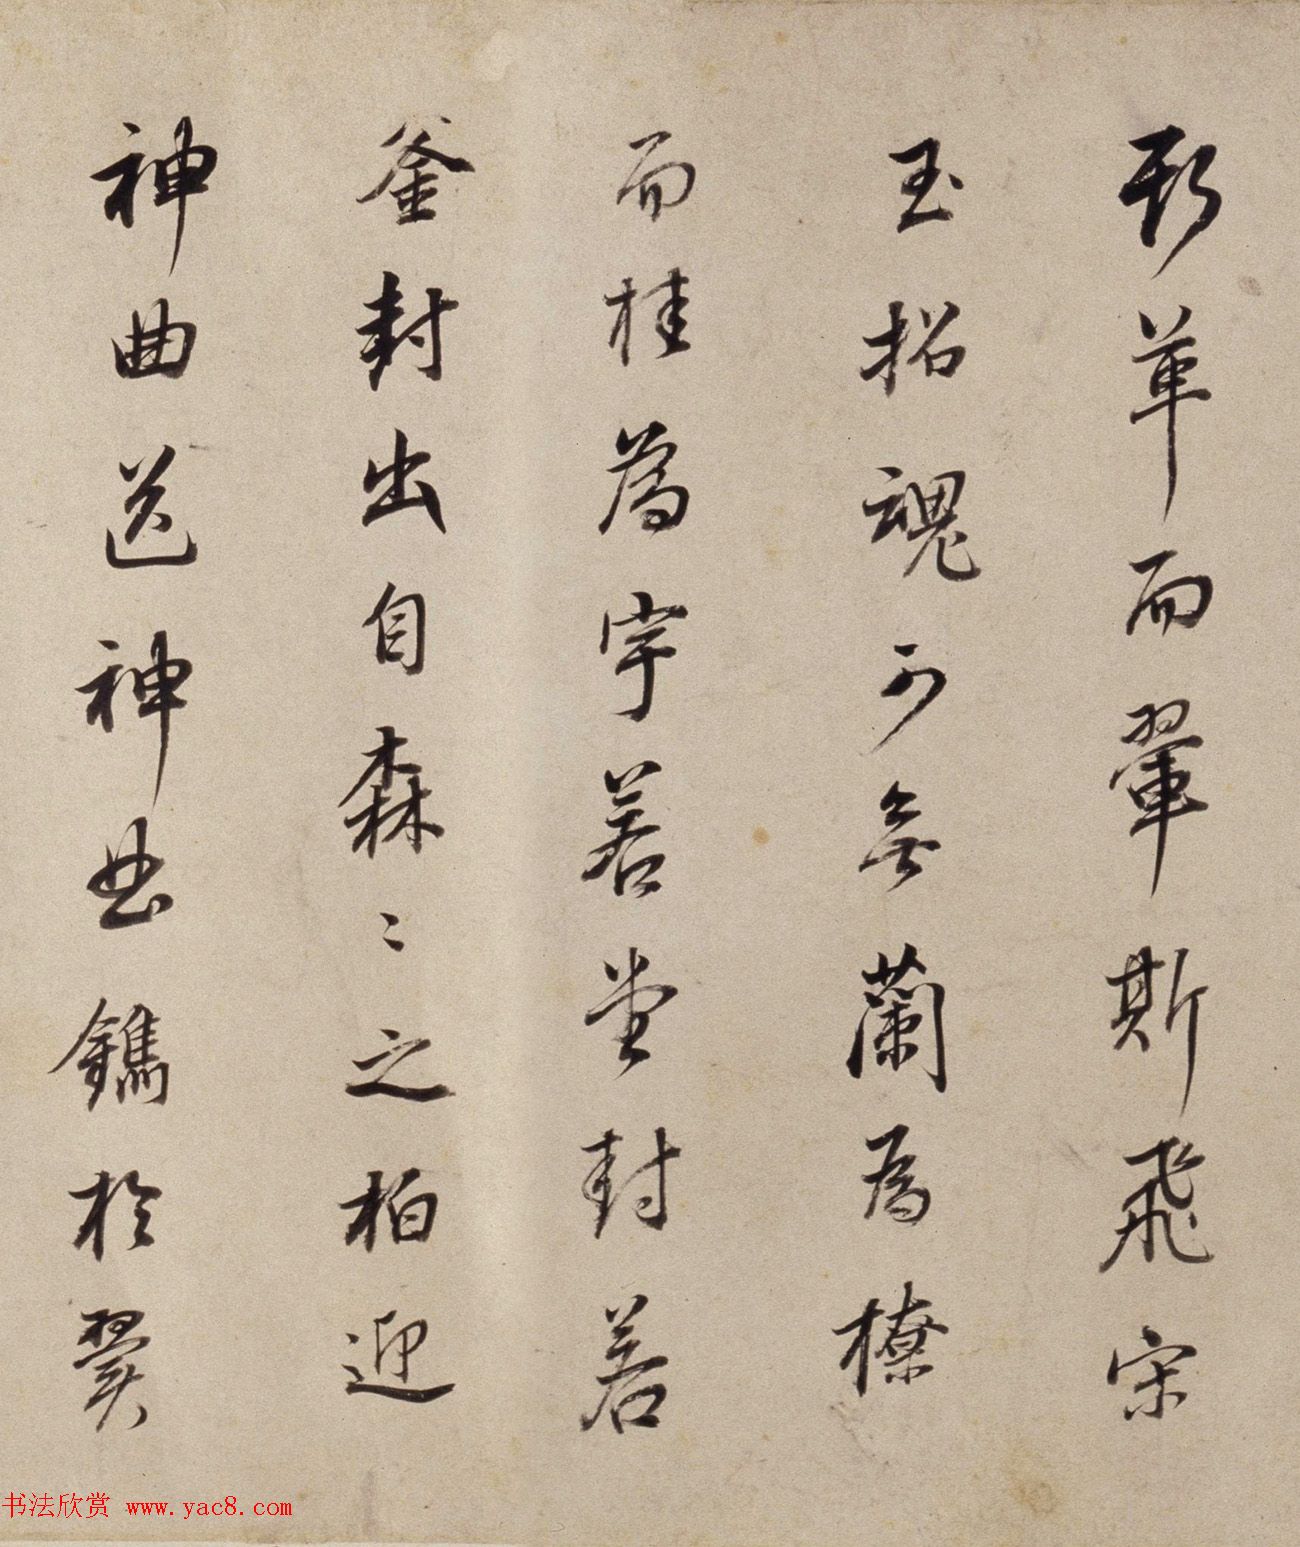 斯革而翬斯飛宋
玉招魂可無蘭為橑
而桂為宇若堂封若
釜封出自森〻之柏迎
神曲送神曲鐫於翼
书法欣赏 www.yac8.com